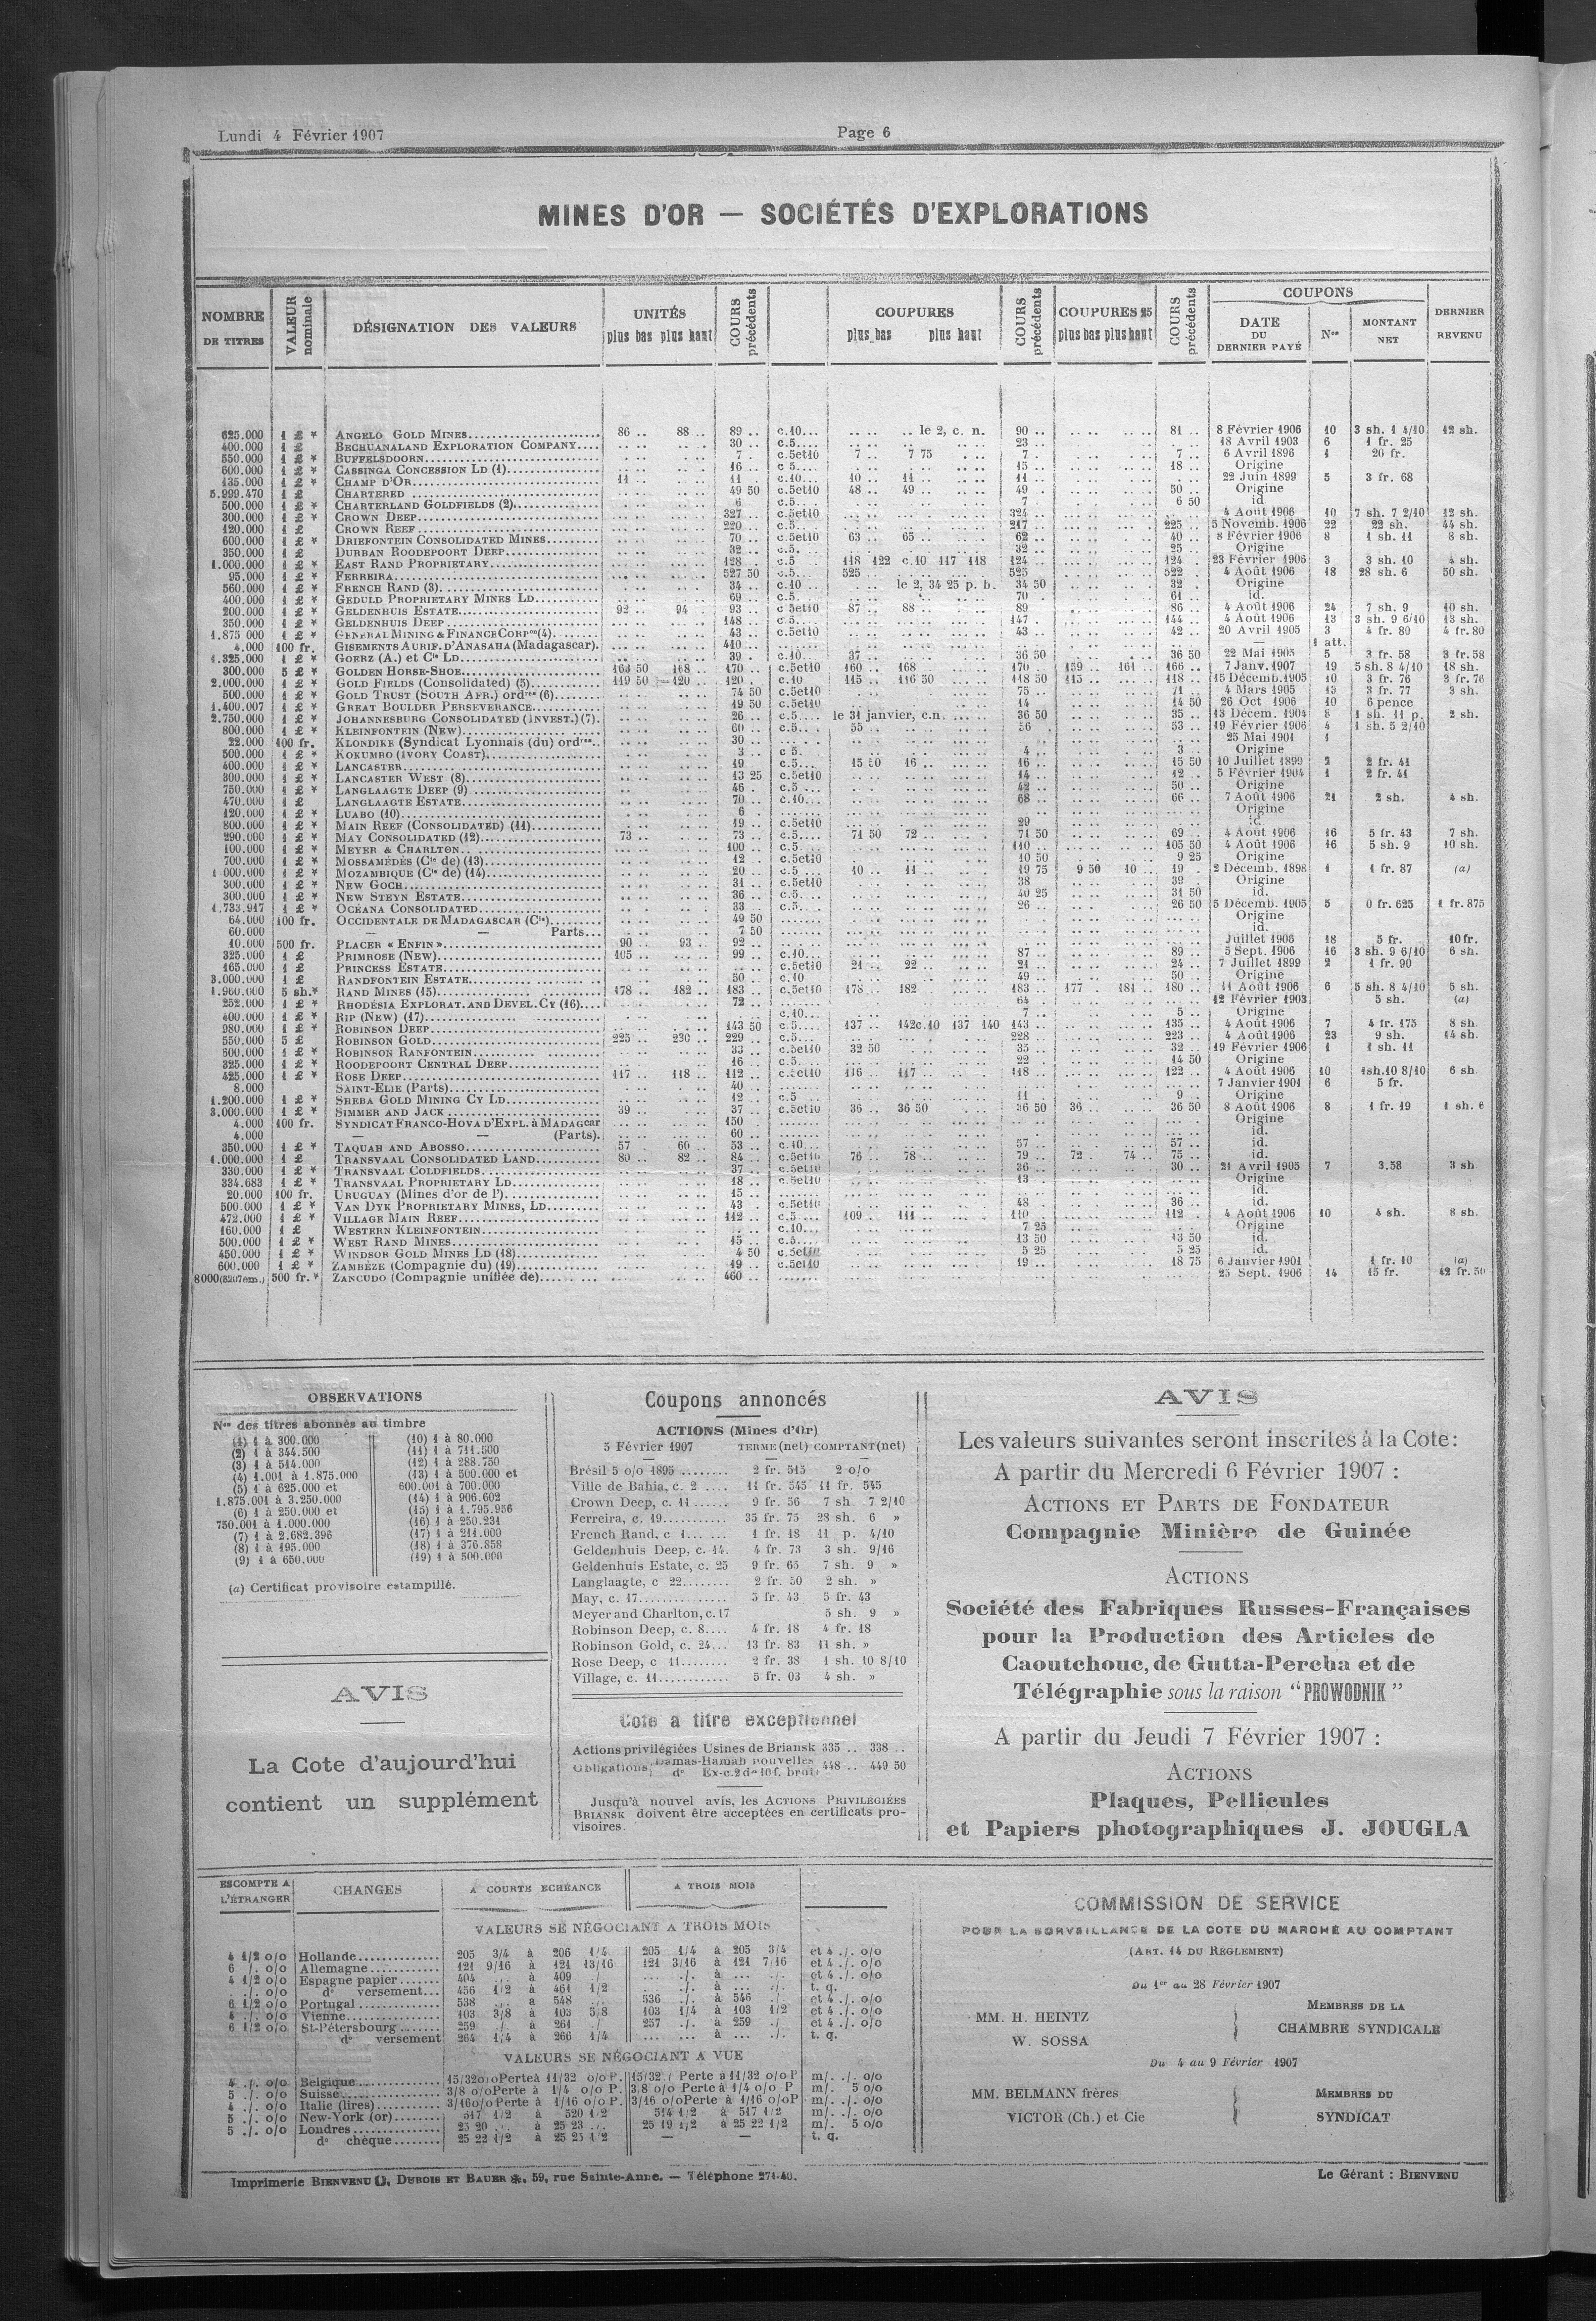 Lundi 4 Février 1907
Page 6
MINES D'OR — SOCIÉTÉS D'EXPLORATIONS
NOMBRE DE TITRES
VALEUR nominale
DÉSIGNATION DES VALEURS
UNITÉS
plus bas plus haut
COURS précédents
COUPURES
plus bas plus haut
COURS précédents
COUPURES 25
plus bas plus haut
COURS précédents
COUPONS
DATE DU DERNIER PAYÉ
Nos
MONTANT NET
DERNIER REVENU
625.000 1 £ * ANGELO GOLD MINES 86 .. 88 .. 89 .. c.10... .. le 2, c. n. 90 .. 81 .. 8 Février 1906 10 3 sh. 1 4/10 12 sh.
400.000 1 £ BECHUANALAND EXPLORATION COMPANY 30 .. c.5... 23 .. 18 Avril 1903 6 1 fr. 25
550.000 1 £ * BUFFELSDOORN 7 .. c.5et10 7 .. 7 75 7 .. 7 .. 6 Avril 1896 1 20 fr.
600.000 1 £ * CASSINGA CONCESSION LD (1) 16 .. c 5... 15 .. 18 .. Origine
135.000 1 £ * CHAMP D'OR 11 .. 11 .. c.10... 10 .. 11 .. 11 .. 22 Juin 1899 5 3 fr. 68
5.999.470 1 £ CHARTERED 49 50 c.5et10 48 .. 49 .. 49 .. 50 .. Origine
500.000 1 £ * CHARTERLAND GOLDFIELDS (2) 6 c.5... 7 6 50 id.
300.000 1 £ * CROWN DEEP 327 .. c.5et10 324 .. 4 Août 1906 10 7 sh. 7 2/10 12 sh.
120.000 1 £ CROWN REEF 220 .. c.5... 217 .. 225 .. 5 Novemb. 1906 22 22 sh. 44 sh.
600.000 1 £ * DRIEFONTEIN CONSOLIDATED MINES 70 .. c.5et10 63 .. 65 .. 62 .. 40 .. 8 Février 1906 8 1 sh. 11 8 sh.
350.000 1 £ DURBAN ROODEPOORT DEEP 32 .. c.5. 32 .. 25 .. Origine
1.000.000 1 £ * EAST RAND PROPRIETARY 128 .. c.5 118 122 c.10 117 118 124 .. 124 .. 23 Février 1906 3 3 sh. 10 4 sh.
95.000 1 £ * FERREIRA 527 50 c.5... 525 .. 525 522 .. 4 Août 1906 18 28 sh. 6 50 sh.
560.000 1 £ * FRENCH RAND (3) 34 .. c.10... le 2, 34 25 p. b. 34 50 32 .. Origine
400.000 1 £ * GEDULD PROPRIETARY MINES LD 69 .. c.5. 70 .. 61 .. id.
200.000 1 £ * GELDENHUIS ESTATE 92 .. 94 .. 93 .. c 5et10 87 .. 88 .. 89 86 .. 4 Août 1906 24 7 sh. 9 10 sh.
350.000 1 £ * GELDENHUIS DEEP 148 .. c.5... 147 .. 144 .. 4 Août 1906 13 3 sh. 9 6/10 13 sh.
1.875 000 1 £ * GENERAL MINING & FINANCE CORPon (4) 43 .. c.5et10 43 .. 42 .. 20 Avril 1905 3 4 fr. 80 4 fr. 80
4.000 100 fr. GISEMENTS AURIF. D'ANASAHA (Madagascar) 410 ... — 1 att.
1.325.000 1 £ * GOERZ (A.) et Cie LD 39 . c.10.. 37 .. 36 50 36 50 22 Mai 1905 5 3 fr. 58 3 fr. 58
300.000 5 £ * GOLDEN HORSE-SHOE 163 50 168 .. 170 .. c.5et10 160 .. 168 170 .. 159 .. 161 .. 166 .. 7 Janv. 1907 19 5 sh. 8 4/10 18 sh.
2.000.000 1 £ * GOLD FIELDS (Consolidated) (5) 119 50 120 .. 120 . c.10 115 .. 116 50 118 50 115 .. 118 .. 15 Décemb. 1905 10 3 fr. 76 3 fr. 76
500.000 1 £ * GOLD TRUST (SOUTH AFR.) ordres (6) 74 50 c.5et10 75 .. 71 .. 4 Mars 1905 13 3 fr. 77 3 sh.
1.400.007 1 £ * GREAT BOULDER PERSEVERANCE 19 50 c.5et10 14 .. 14 50 26 Oct 1906 10 6 pence
2.750.000 1 £ * JOHANNESBURG CONSOLIDATED (INVEST.) (7) 26 .. c.5... le 31 janvier, c.n. 36 50 35 .. 13 Décem. 1904 8 1 sh. 11 p. 2 sh.
800.000 1 £ * KLEINFONTEIN (NEW) 60 .. c.5.. 55 .. 56 53 .. 19 Février 1906 4 1 sh. 5 2/10
22.000 100 fr. KLONDIKE (Syndicat Lyonnais (du) ordres 30 .. 25 Mai 1901 1
500.000 1 £ * KOKUMBO (IVORY COAST) 3 .. c 5. 4 .. 3 .. Origine
400.000 1 £ * LANCASTER 19 .. c.5... 15 50 16 .. 16 .. 15 50 10 Juillet 1899 2 2 fr. 41
300.000 1 £ * LANCASTER WEST (8) 13 25 c.5et10 14 .. 12 .. 5 Février 1904 1 2 fr. 41
750.000 1 £ * LANGLAAGTE DEEP (9) 46 . c.5 ... 42 .. 50 .. Origine
470.000 1 £ LANGLAAGTE ESTATE 70 .. c.10... 68 .. 66 .. 7 Août 1906 21 2 sh. 4 sh.
120.000 1 £ * LUABO (10) 6 Origine
800.000 1 £ * MAIN REEF (CONSOLIDATED) (11) 19 .. c.5et10 29 id.
290.000 1 £ * MAY CONSOLIDATED (12) 73 .. 73 .. c.5... 71 50 72 .. 71 50 69 .. 4 Août 1906 16 5 fr. 43 7 sh.
100.000 1 £ * MEYER & CHARLTON 100 .. c.5... 110 .. 105 50 4 Août 1906 16 5 sh. 9 10 sh.
700.000 1 £ * MOSSAMÉDÈS (Cie de) (13) 12 .. c.5et10 10 50 9 25 Origine
1 000.000 1 £ * MOZAMBIQUE (Cie de) (14) 20 .. c.5 10 .. 11 .. 19 75 9 50 10 .. 19 . 2 Décemb. 1898 1 1 fr. 87 (a)
300.000 1 £ * NEW GOCH 31 .. c.5et10 38 39 .. Origine
300.000 1 £ * NEW STEYN ESTATE 36 .. c.5... 40 25 31 50 id.
1.733.917 1 £ * OCÉANA CONSOLIDATED 33 c.5... 26 .. 26 50 5 Décemb. 1905 5 0 fr. 625 1 fr. 875
64.000 100 fr. OCCIDENTALE DE MADAGASCAR (Cie) 49 50 Origine
60.000 — — Parts... 7 50 id.
10.000 500 fr. PLACER « ENFIN » 90 .. 93 .. 92 .. Juillet 1906 18 5 fr. 10 fr.
325.000 1 £ PRIMROSE (New) 105 .. 99 .. c.10... 87 .. 89 .. 5 Sept. 1906 16 3 sh. 9 6/10 6 sh.
165.000 1 £ PRINCESS ESTATE c.5et10 21 .. 22 .. 21 .. 24 .. 7 Juillet 1899 2 1 fr. 90
3.000.000 1 £ RANDFONTEIN ESTATE 50 .. c.10 49 .. 50 .. Origine
1.960.000 5 sh.* RAND MINES (15) 178 .. 182 .. 183 .. c.5et10 178 .. 182 183 .. 177 . 181 .. 180 .. 11 Août 1906 6 5 sh. 8 4/10 5 sh.
252.000 1 £ * RHODÉSIA EXPLORAT. AND DEVEL. CY (16) 72 .. 64 12 Février 1903 5 sh. (a)
400.000 1 £ * RIP (NEW) (17) c.10... 7 .. 5 .. Origine
980.000 1 £ * ROBINSON DEEP 143 50 c.5... 137 .. 142 c.10 137 140 143 .. 135 .. 4 Août 1906 7 4 fr. 175 8 sh.
550.000 5 £ ROBINSON GOLD 225 .. 230 .. 229 .. c.5... 228 .. 223 .. 4 Août 1906 23 9 sh. 14 sh.
600.000 1 £ * ROBINSON RANFONTEIN 33 .. c.5et10 32 50 35 .. 32 .. 19 Février 1906 1 1 sh. 11
325.000 1 £ * ROODEPOORT CENTRAL DEEP 16 c.5... 22 14 50 Origine
425.000 1 £ * ROSE DEEP 117 .. 118 .. 112 .. c.5et10 116 .. 117 .. 118 .. 122 .. 4 Août 1906 10 1sh.10 8/10 6 sh.
8.000 SAINT-ELIE (Parts) 40 .. 7 Janvier 1901 6 5 fr.
1.200.000 1 £ * SHEBA GOLD MINING CY LD 12 .. c.5 11 9 .. Origine
3.000.000 1 £ * SIMMER AND JACK 39 .. 37 .. c.5et10 36 .. 36 50 36 50 36 .. 36 50 8 Août 1906 8 1 fr. 19 1 sh. 6
4.000 100 fr. SYNDICAT FRANCO-HOVA D'EXPL. à MADAGcar 150 Origine
4.000 — — (Parts). 60 .. id.
350.000 1 £ * TAQUAH AND ABOSSO 57 60 .. 53 .. c.10... 57 .. 57 .. id.
1.000.000 1 £ TRANSVAAL CONSOLIDATED LAND 80 .. 82 .. 84 .. c.5et10 76 .. 78 .. 79 .. 72 .. 74 .. 75 .. id.
330.000 1 £ * TRANSVAAL COLDFIELDS 37 .. c.5et10 36 .. 30 .. 21 Avril 1905 7 3.58 3 sh
334.683 1 £ * TRANSVAAL PROPRIETARY LD 18 .. c.5et10 13 .. Origine
20.000 100 fr. URUGUAY (Mines d'or de l') 15 .. id.
500.000 1 £ * VAN DYK PROPRIETARY MINES, LD 43 c.5et10 48 .. 36 .. id.
472.000 1 £ * VILLAGE MAIN REEF 112 .. c.5 ... 109 .. 111 .. 110 .. 112 .. 4 Août 1906 10 4 sh. 8 sh.
160.000 1 £ WESTERN KLEINFONTEIN c.10... 7 25 Origine
500.000 1 £ * WEST RAND MINES 15 .. c.5... 13 50 13 50 id.
450.000 1 £ * WINDSOR GOLD MINES LD (18) 4 50 c.5et10 5 25 5 25 id.
600.000 1 £ * ZAMBÈZE (Compagnie du) (19) 19 .. c.5et10 19 .. 18 75 6 Janvier 1901 1 fr. 10 (a)
8000(8207em.) 500 fr.* ZANCUDO (Compagnie unifiée de) 460 .. 25 Sept. 1906 14 15 fr. 42 fr. 50
OBSERVATIONS
Nos des titres abonnés au timbre
(1) 1 à 300.000
(2) 1 à 344.500
(3) 1 à 514.000
(4) 1.001 à 1.875.000
(5) 1 à 625.000 et
1.875.001 à 3.250.000
(6) 1 à 250.000 et
750.001 à 1.000.000
(7) 1 à 2.682.396
(8) 1 à 195.000
(9) 1 à 650.000
(10) 1 à 80.000
(11) 1 à 711.500
(12) 1 à 288.750
(13) 1 à 500.000 et
600.001 à 700.000
(14) 1 à 906.602
(15) 1 à 1.795.956
(16) 1 à 250.231
(17) 1 à 211.000
(18) 1 à 376.858
(19) 1 à 500.000
(a) Certificat provisoire estampillé.
AVIS
La Cote d'aujourd'hui
contient un supplément
Coupons annoncés
ACTIONS (Mines d'Or)
5 Février 1907 TERME (net) COMPTANT (net)
Brésil 5 o/o 1895 ........ 2 fr. 515 2 o/o
Ville de Bahia, c. 2 .... 11 fr. 545 11 fr. 545
Crown Deep, c. 11 ...... 9 fr. 56 7 sh. 7 2/10
Ferreira, c. 19........... 35 fr. 75 28 sh. 6 »
French Rand, c 1... ... 1 fr. 18 11 p. 4/10
Geldenhuis Deep, c. 14. 4 fr. 73 3 sh. 9/16
Geldenhuis Estate, c. 25 9 fr. 65 7 sh. 9 »
Langlaagte, c 22........ 2 fr. 50 2 sh. »
May, c. 17............... 5 fr. 43 5 fr. 43
Meyer and Charlton, c. 17 5 sh. 9 »
Robinson Deep, c. 8.... 4 fr. 18 4 fr. 18
Robinson Gold, c. 24... 13 fr. 83 11 sh. »
Rose Deep, c 11........ 2 fr. 38 1 sh. 10 8/10
Village, c. 11............ 5 fr. 03 4 sh. »
Cote à titre exceptionnel
Actions privilégiées Usines de Briansk 335 .. 338 ..
Obligations Damas-Hamah nouvelles
do Ex-c. 2 de 10 f. brut 448 .. 449 50
Jusqu'à nouvel avis, les ACTIONS PRIVILÉGIÉES
BRIANSK doivent être acceptées en certificats pro-
visoires.
AVIS
Les valeurs suivantes seront inscrites à la Cote:
A partir du Mercredi 6 Février 1907 :
ACTIONS ET PARTS DE FONDATEUR
Compagnie Minière de Guinée
ACTIONS
Société des Fabriques Russes-Françaises
pour la Production des Articles de
Caoutchouc, de Gutta-Percha et de
Télégraphie sous la raison "PROWODNIK"
A partir du Jeudi 7 Février 1907 :
ACTIONS
Plaques, Pellicules
et Papiers photographiques J. JOUGLA
ESCOMPTE A L'ÉTRANGER
CHANGES
A COURTE ECHÉANCE
A TROIS MOIS
VALEURS SE NÉGOCIANT A TROIS MOIS
4 1/2 o/o Hollande 205 3/4 à 206 1/4 205 1/4 à 205 3/4 et 4 ./. o/o
6 /. o/o Allemagne 121 9/16 à 121 13/16 121 3/16 à 121 7/16 et 4 ./. o/o
4 1/2 o/o Espagne papier 404 ./. à 409 ./ ... ./. à ... ./. et 4 ./. o/o
. ./. o/o do versement 456 1/2 à 461 1/2 ./. à ... ./. t. q.
6 1/2 o/o Portugal 538 ... à 548 ... 536 ./. à 546 ./. et 4 ./. o/o
4 ./. o/o Vienne 103 3/8 à 103 5/8 103 1/4 à 103 1/2 et 4 ./. o/o
6 1/2 o/o St-Pétersbourg 259 ./. à 261 ./ 257 ./. à 259 ./ et 4 ./. o/o
do versement 264 1/4 à 266 1/4 ... ... à ... ./. t. q.
VALEURS SE NÉGOCIANT A VUE
4 ./. o/o Belgique 15/32 o/o Perte à 11/32 o/o P. 15/32 / Perte à 11/32 o/o P m/. ./. o/o
5 ./. o/o Suisse 3/8 o/o Perte à 1/4 o/o P. 3/8 o/o Perte à 1/4 o/o P m/. 5 o/o
4 ./. o/o Italie (lires) 3/16 o/o Perte à 1/16 o/o P. 3/16 o/o Perte à 1/16 o/o P m/. ./. o/o
5 ./. o/o New-York (or) 517 1/2 à 520 1/2 514 1/2 à 517 1/2 m/. ./. o/o
5 ./. o/o Londres 25 20 ... à 25 23 ./. 25 19 1/2 à 25 22 1/2 m/. 5 o/o
do chèque 25 22 1/2 à 25 25 1/2 — — t. q.
COMMISSION DE SERVICE
POUR LA SURVEILLANCE DE LA COTE DU MARCHÉ AU COMPTANT
(ART. 14 DU RÈGLEMENT)
Du 1er au 28 Février 1907
MM. H. HEINTZ
W. SOSSA
MEMBRES DE LA
CHAMBRE SYNDICALE
Du 4 au 9 Février 1907
MM. BELMANN frères
VICTOR (Ch.) et Cie
MEMBRES DU
SYNDICAT
Imprimerie BIENVENU, DUBOIS ET BAUER, 59, rue Sainte-Anne. — Téléphone 271-40.
Le Gérant : BIENVENU